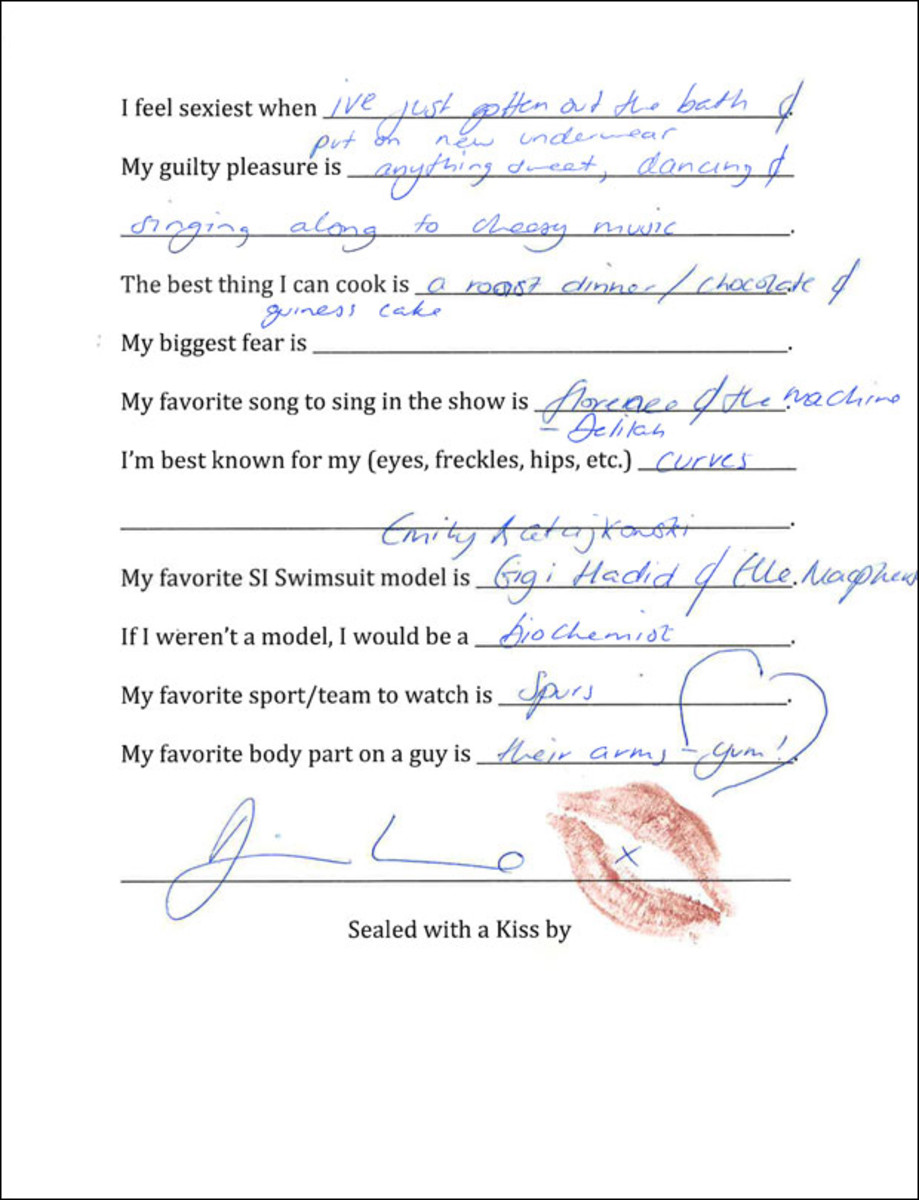 I feel sexiest when ive just gotten out the bath &
put on new underwear
My guilty pleasure is anything sweet, dancing &
singing along to cheesy music.
The best thing I can cook is a roast dinner/chocolate &
guiness cake
My biggest fear is .
My favorite song to sing in the show is florence & the machine
- Delilah
I'm best known for my (eyes, freckles, hips, etc.) curves
Emily Ratajkowski
My favorite SI Swimsuit model is Gigi Hadid & Elle Macpherson
If I weren't a model, I would be a biochemist.
My favorite sport/team to watch is Spurs.
My favorite body part on a guy is their arms - yum!
x
Sealed with a Kiss by